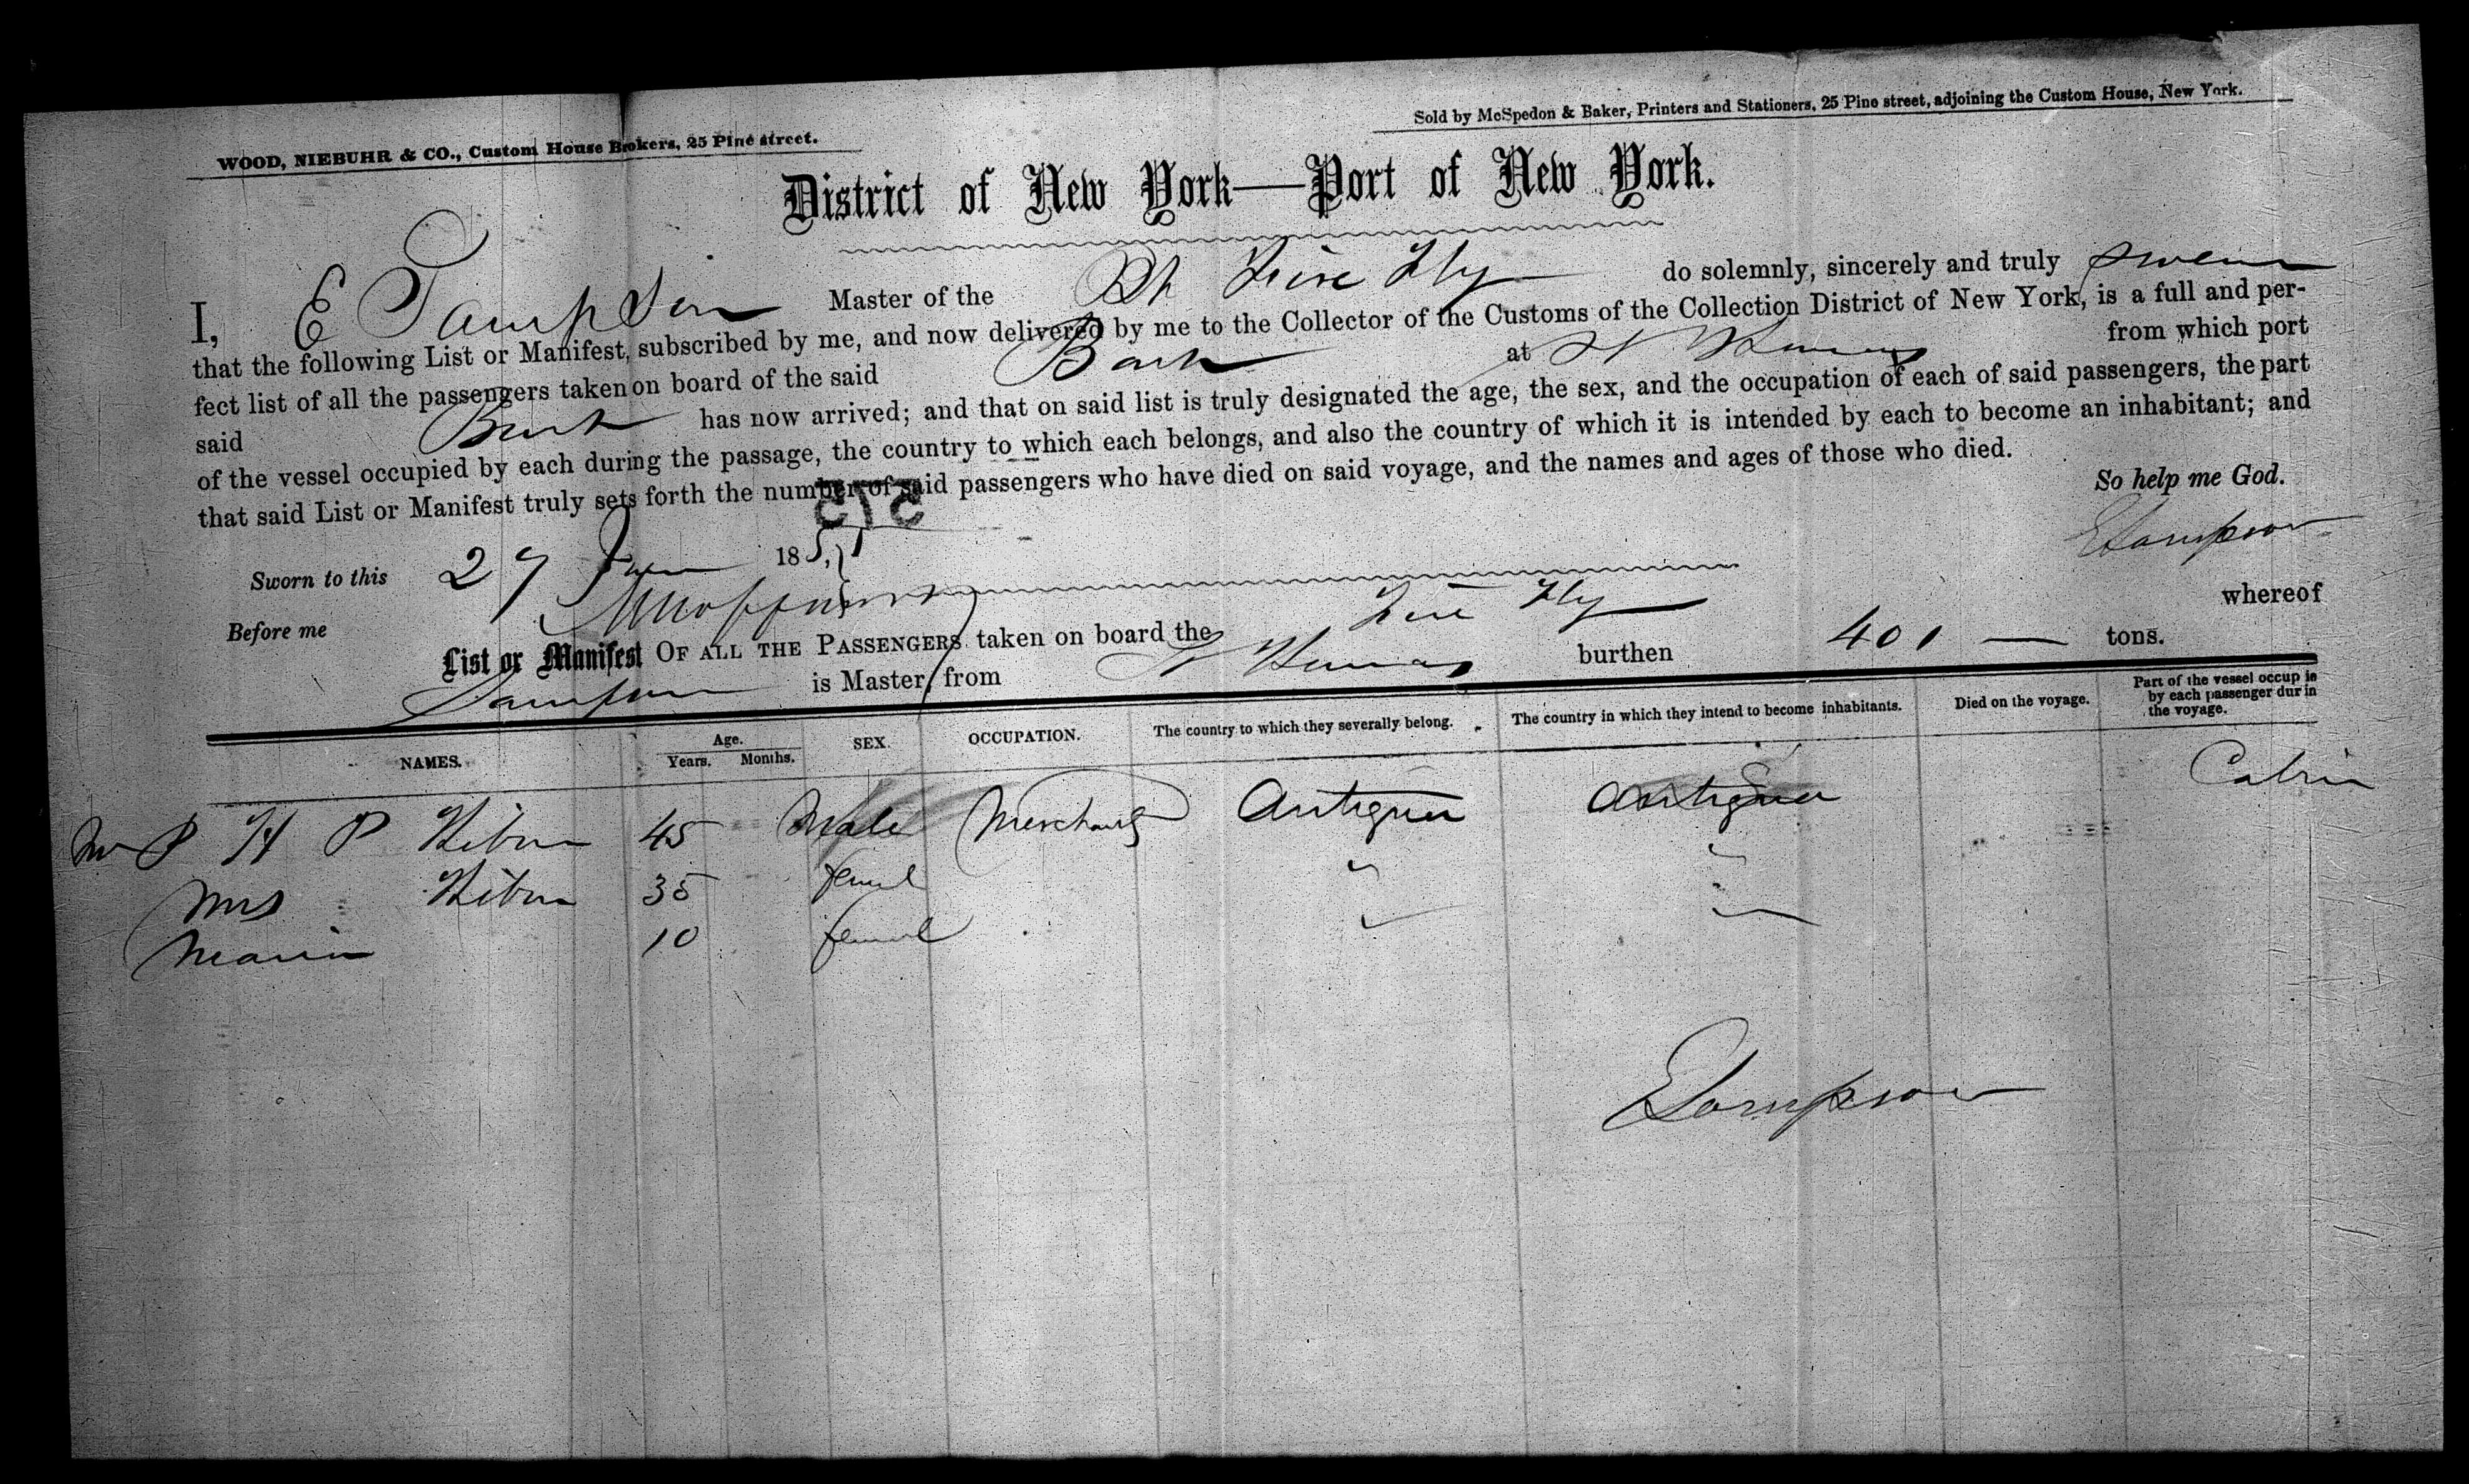 WOOD, NIEBUHR & CO., Custom House Brokers, 25 Pine street.
Sold by McSpedon & Baker, Printers and Stationers, 25 Pine street, adjoining the Custom House, New York.
District of New York—Port of New York.
I, E Sampson Master of the Bk Fire Fly do solemnly, sincerely and truly swear
that the following List or Manifest, subscribed by me, and now delivered by me to the Collector of the Customs of the Collection District of New York, is a full and per-
fect list of all the passengers taken on board of the said Bark at St Thomas from which port
said Bark has now arrived; and that on said list is truly designated the age, the sex, and the occupation of each of said passengers, the part
of the vessel occupied by each during the passage, the country to which each belongs, and also the country of which it is intended by each to become an inhabitant; and
that said List or Manifest truly sets forth the number of said passengers who have died on said voyage, and the names and ages of those who died.
So help me God.
515
Sworn to this 27 June 1851
ESampson
Before me
List or Manifest OF ALL THE PASSENGERS taken on board the Fire Fly whereof
Sampson is Master, from St Thomas burthen 401 — tons.
NAMES. Age. Years. Months. SEX. OCCUPATION. The country to which they severally belong. The country in which they intend to become inhabitants. Died on the voyage. Part of the vessel occup ie by each passenger dur in the voyage.
P H P 45 Male Merchant Antigua Antigua Cabin
Mrs 35 femel " "
Maria 10 femel " "
ESampson